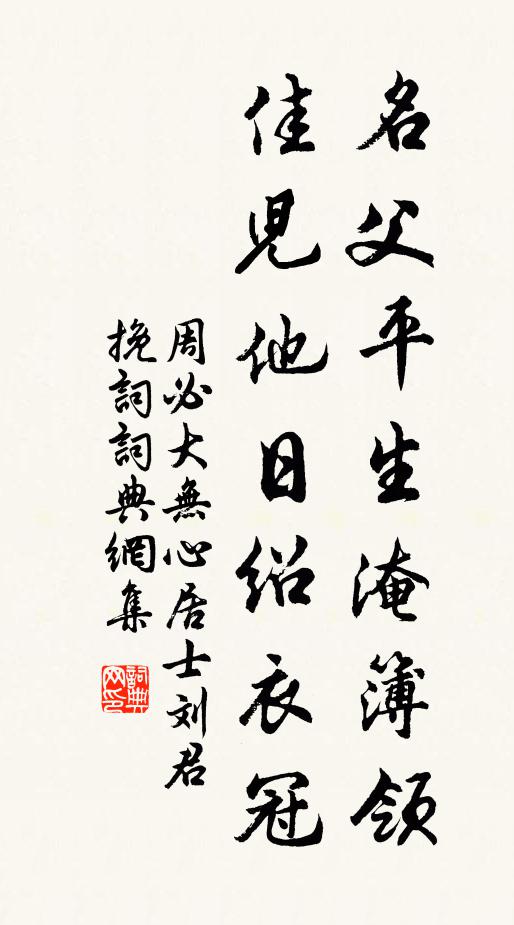 名父平生淹簿領
佳児他日紹衣冠
周必大無心居士刘君
挽詞詞典網集
詞典网印